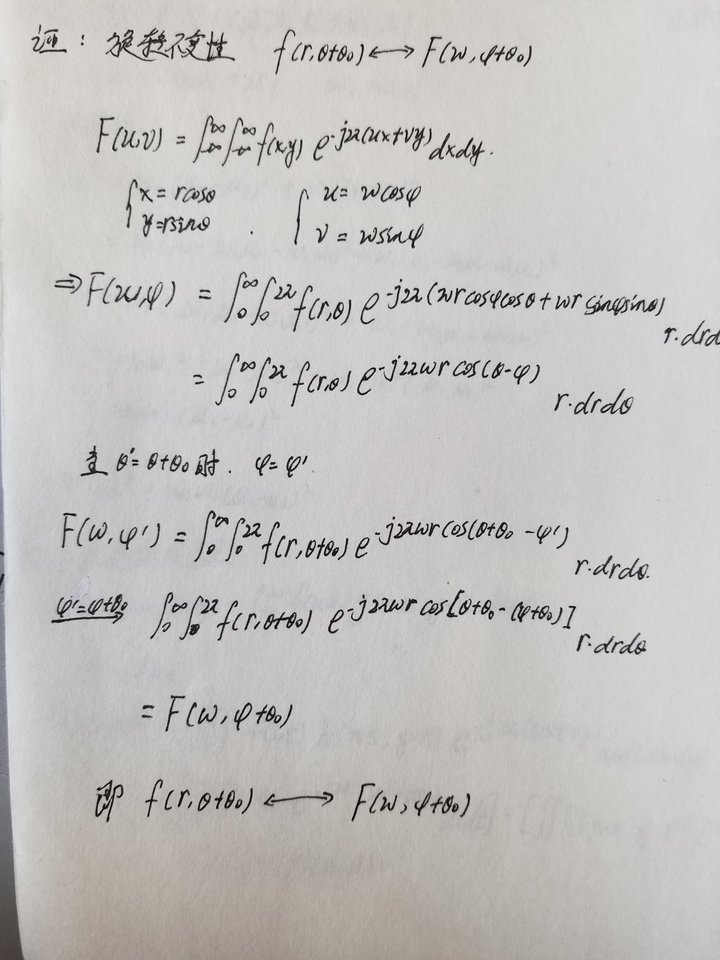 证：旋转不变性 f(r,θ+θ₀) ⟷ F(w,φ+θ₀)
F(u,v) = ∫_{-∞}^{∞}∫_{-∞}^{∞} f(x,y) e^{-j2π(ux+vy)} dxdy.
{x=rcosθ {u=wcosφ
y=rsinθ . v=wsinφ
⇒ F(w,φ) = ∫₀^∞∫₀^{2π} f(r,θ) e^{-j2π(wr cosφcosθ+wr sinφsinθ)} r·drd
= ∫₀^∞∫₀^{2π} f(r,θ) e^{-j2πwr cos(θ-φ)} r·drdθ
当 θ'=θ+θ₀ 时. φ=φ'.
F(w,φ') = ∫₀^∞∫₀^{2π} f(r,θ+θ₀) e^{-j2πwr cos(θ+θ₀-φ')} r·drdθ.
φ'=φ+θ₀ ⟶ ∫₀^∞∫₀^{2π} f(r,θ+θ₀) e^{-j2πwr cos[θ+θ₀-(φ+θ₀)]} r·drdθ
= F(w,φ+θ₀)
即 f(r,θ+θ₀) ⟷ F(w,φ+θ₀)